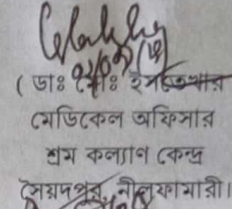 ( ডাঃ মোঃ ইফতেখার
মেডিকেল অফিসার
শ্রম কল্যাণ কেন্দ্র
সৈয়দপুর, নীলফামারী।